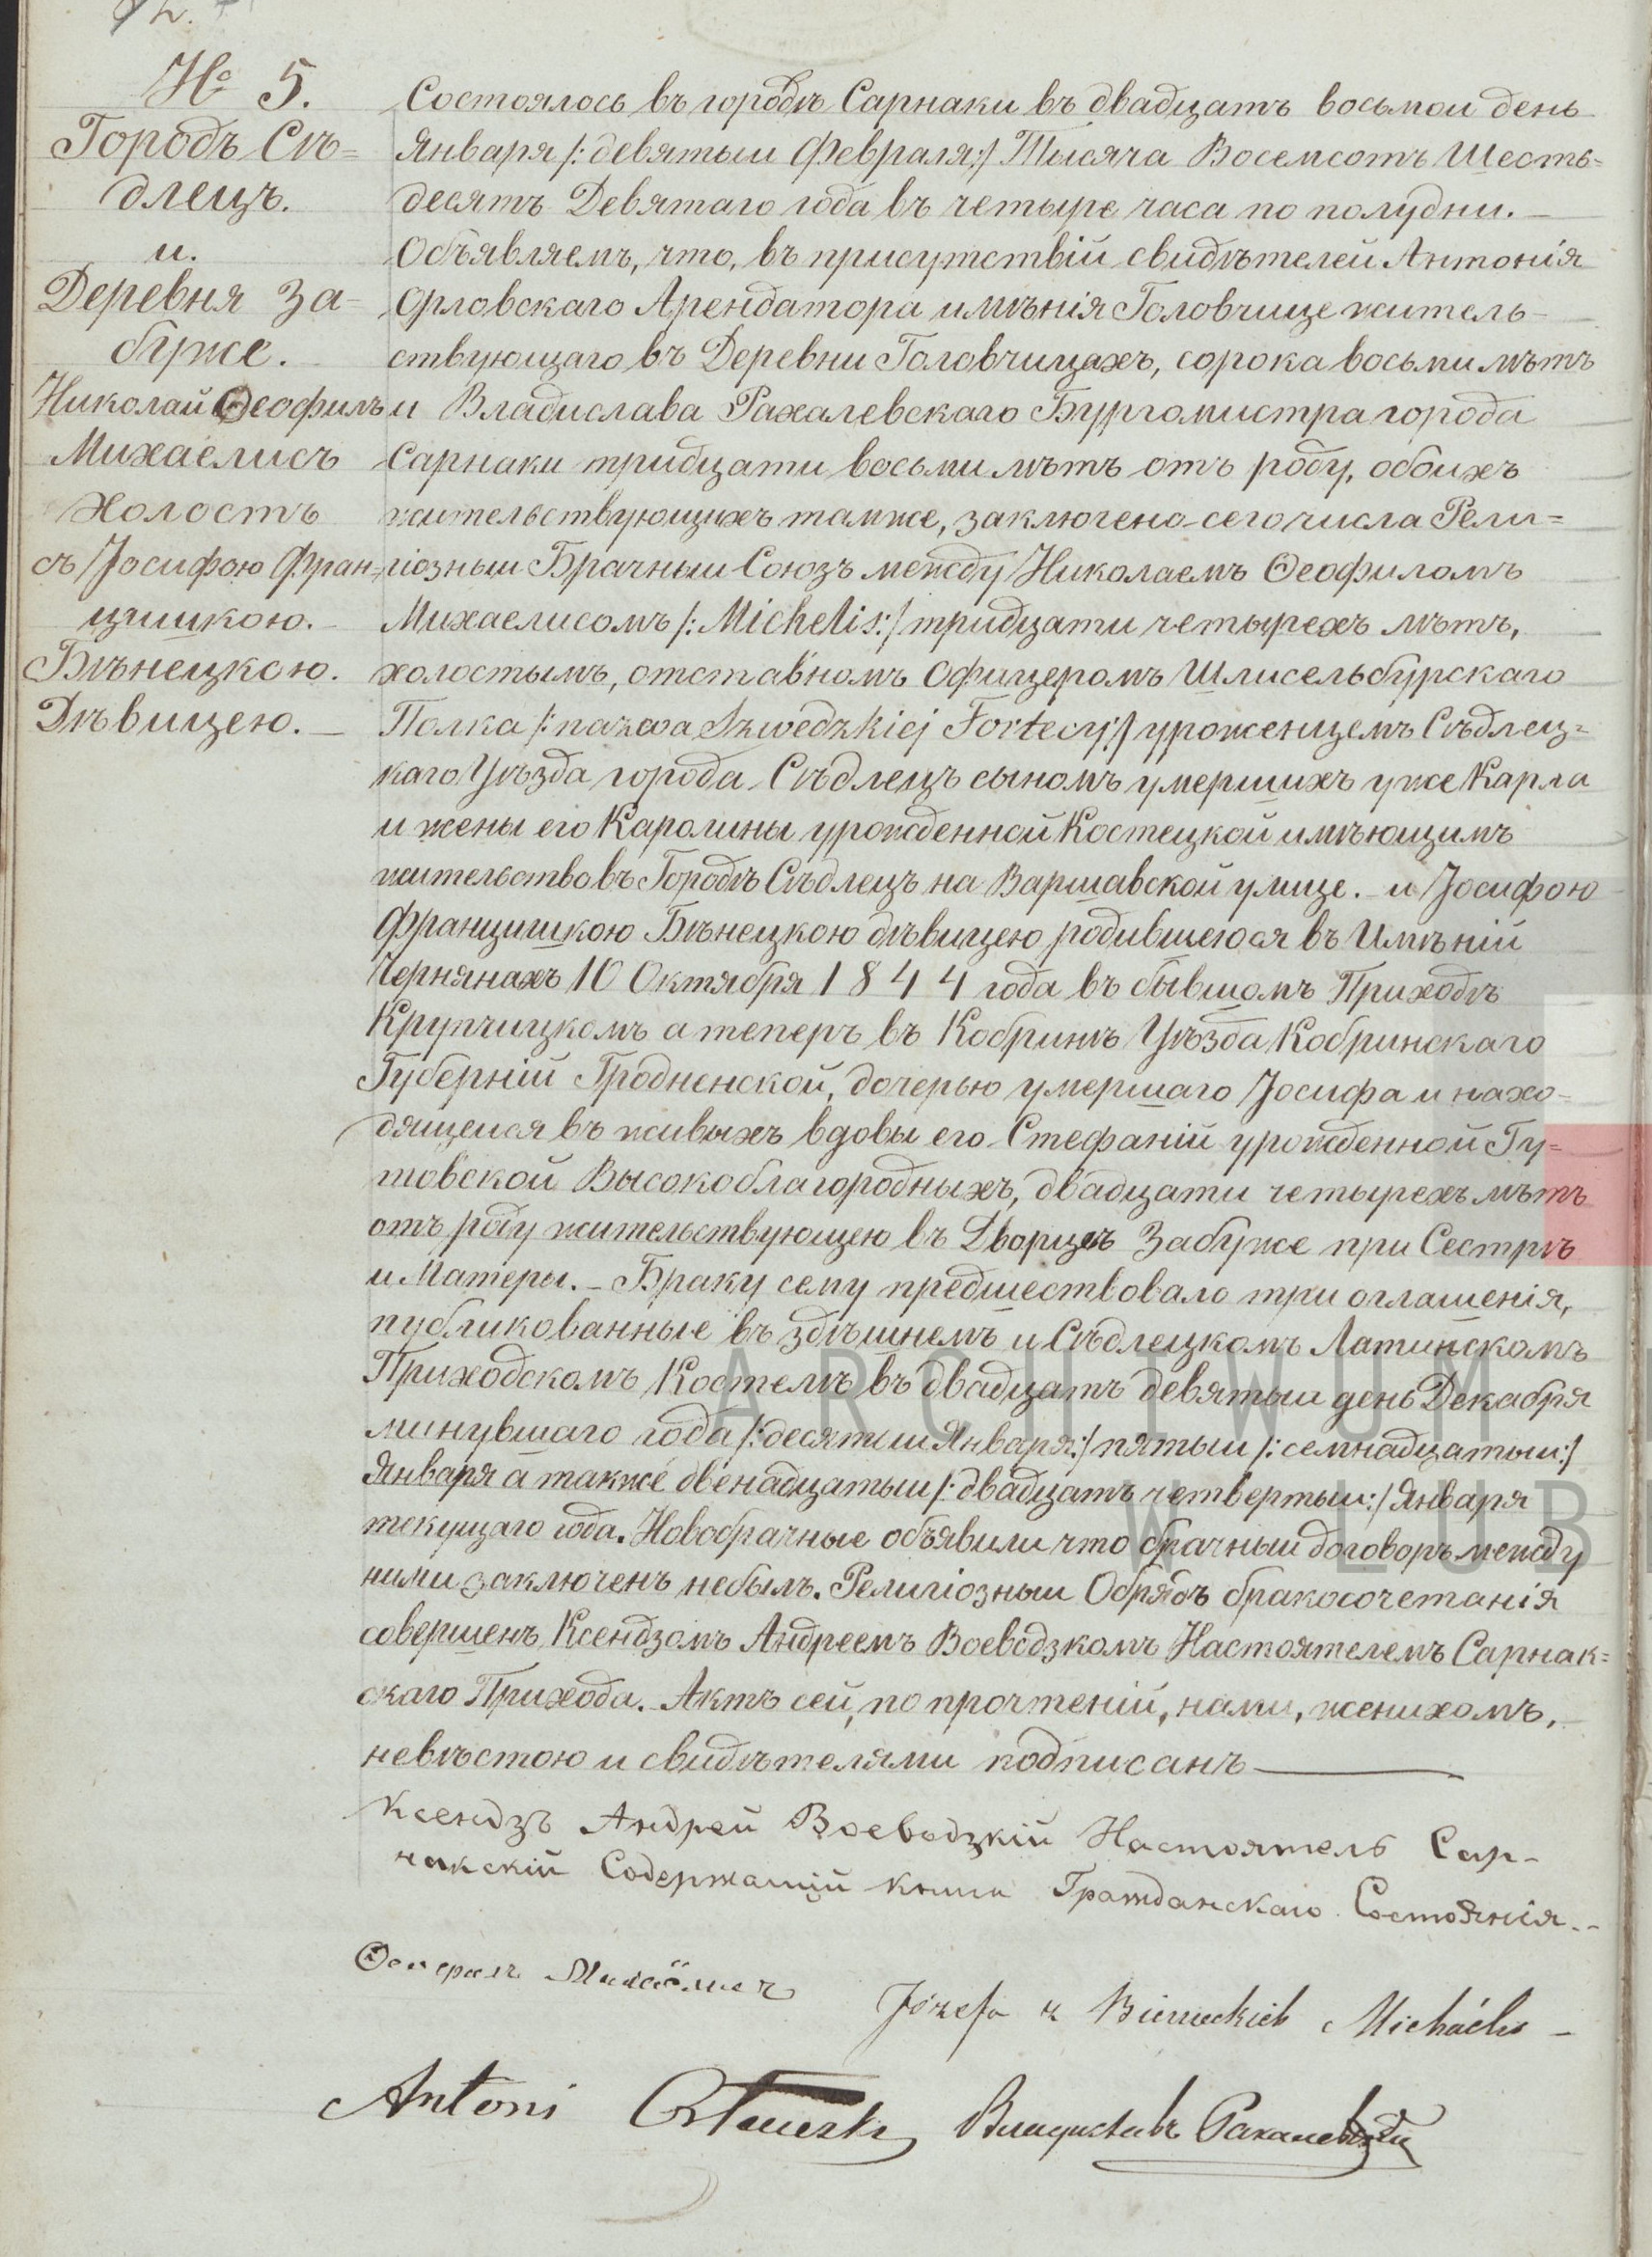 № 5.
Городъ Сѣ=
длецъ.
и.
Деревня За-
буже.
Николай Ѳеофилъ
Михаелисъ
холостъ
съ Іосифою Фран=
цишкою.
Бѣнецкою.
Дѣвицею.
Состоялось въ городѣ Сарнаки въ двадцать восьмои день
Января /: девятыи Февраля:/ Тысяча Восемсотъ Шесть=
десятъ Девятаго года въ четыре часа по полудни.
Объявляемъ, что, въ присутствій свидѣтелей Антонія
Орловскаго Арендатора имѣнія Головчице житель-
ствующаго въ Деревни Головчицахъ, сорока восьми лѣтъ
и Владислава Рахалевскаго Бургомистра города
Сарнаки тридцати восьми лѣтъ отъ роду, обоихъ
жительствующихъ тамже, заключено сего числа Рели=
гіозныи Брачныи Союзъ между Николаемъ Ѳеофиломъ
Михаелисомъ /: Michelis:/ тридцати четырехъ лѣтъ,
холостымъ, отставномъ Офицеромъ Шлисельбурскаго
Полка /: nazwa Szwedzkiej Fortecy:/ уроженцемъ Сѣдлец=
каго Уѣзда города Сѣдлецъ сыномъ умершихъ уже Карла
и жены его Каролины урожденной Костецкой имѣющимъ
жительство въ Городѣ Сѣдлецъ на Варшавской улице. и Іосифою
Францишкою Бѣнецкою дѣвицею родившеюся въ Имѣній
Чернянахъ 10 Октября 1844 года въ бывшомъ Приходѣ
Крупчицкомъ а теперъ въ Кобринѣ Уѣзда Кобринскаго
Губерній Гродненской, дочерью умершаго Іосифа и нахо-
дящейся въ живыхъ вдовы его Стефаній урожденной Гу=
товской Высокоблагородныхъ, двадцати четырехъ лѣтъ
отъ роду жительствующею въ Дворцѣ Забуже при Сестрѣ
и Матеры. Браку сему предшествовало три оглашенія,
публикованные въ здѣшнемъ и Сѣдлецкомъ Латинскомъ
Приходскомъ Костелѣ въ двадцать девятыи день Декабря
минувшаго года /: десятыи Января:/ пятыи /: семнадцатыи:/
Января а также двенадцатыи /: двадцать четвертыи:/ Января
текущаго года. Новобрачные объявили что брачныи договоръ между
ними заключенъ небылъ. Религіозныи Обрядъ бракосочетанія
совершенъ Ксендзомъ Андреемъ Воеводзкомъ Настоятелемъ Сарнак=
скаго Прихода. Актъ сей, по прочтеній, нами, женихомъ,
невѣстою и свидѣтелями подписанъ
Ксендзъ Андрей Воеводзкій Настоятель Сар-
накскій Содержащій книги Гражданскаго Состоянія
Józefa z Bienieckich Michaelis
Antoni Orłowski Владиславъ Рахалевскій
ARCHIWUM
W LUB